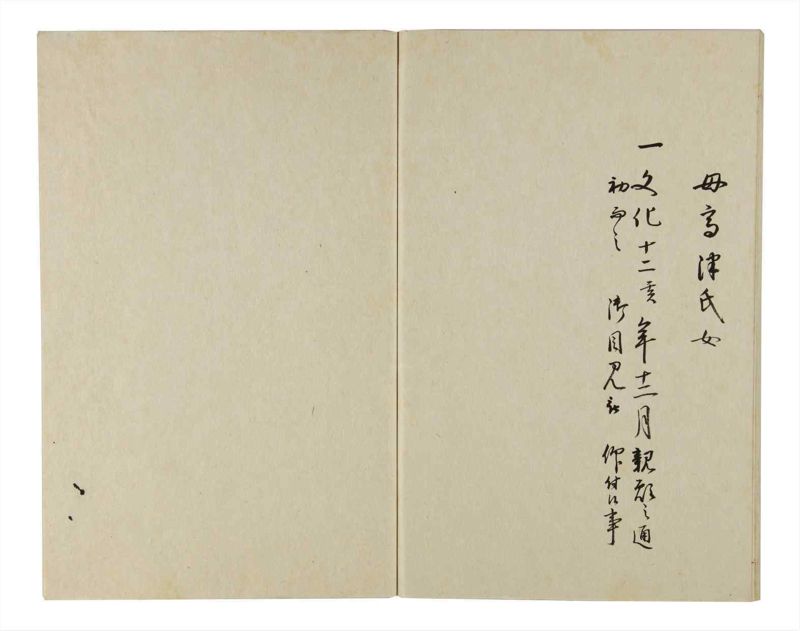 母高津氏女
一文化十二亥年十二月親願之通
初而之 御目見被 仰付候事